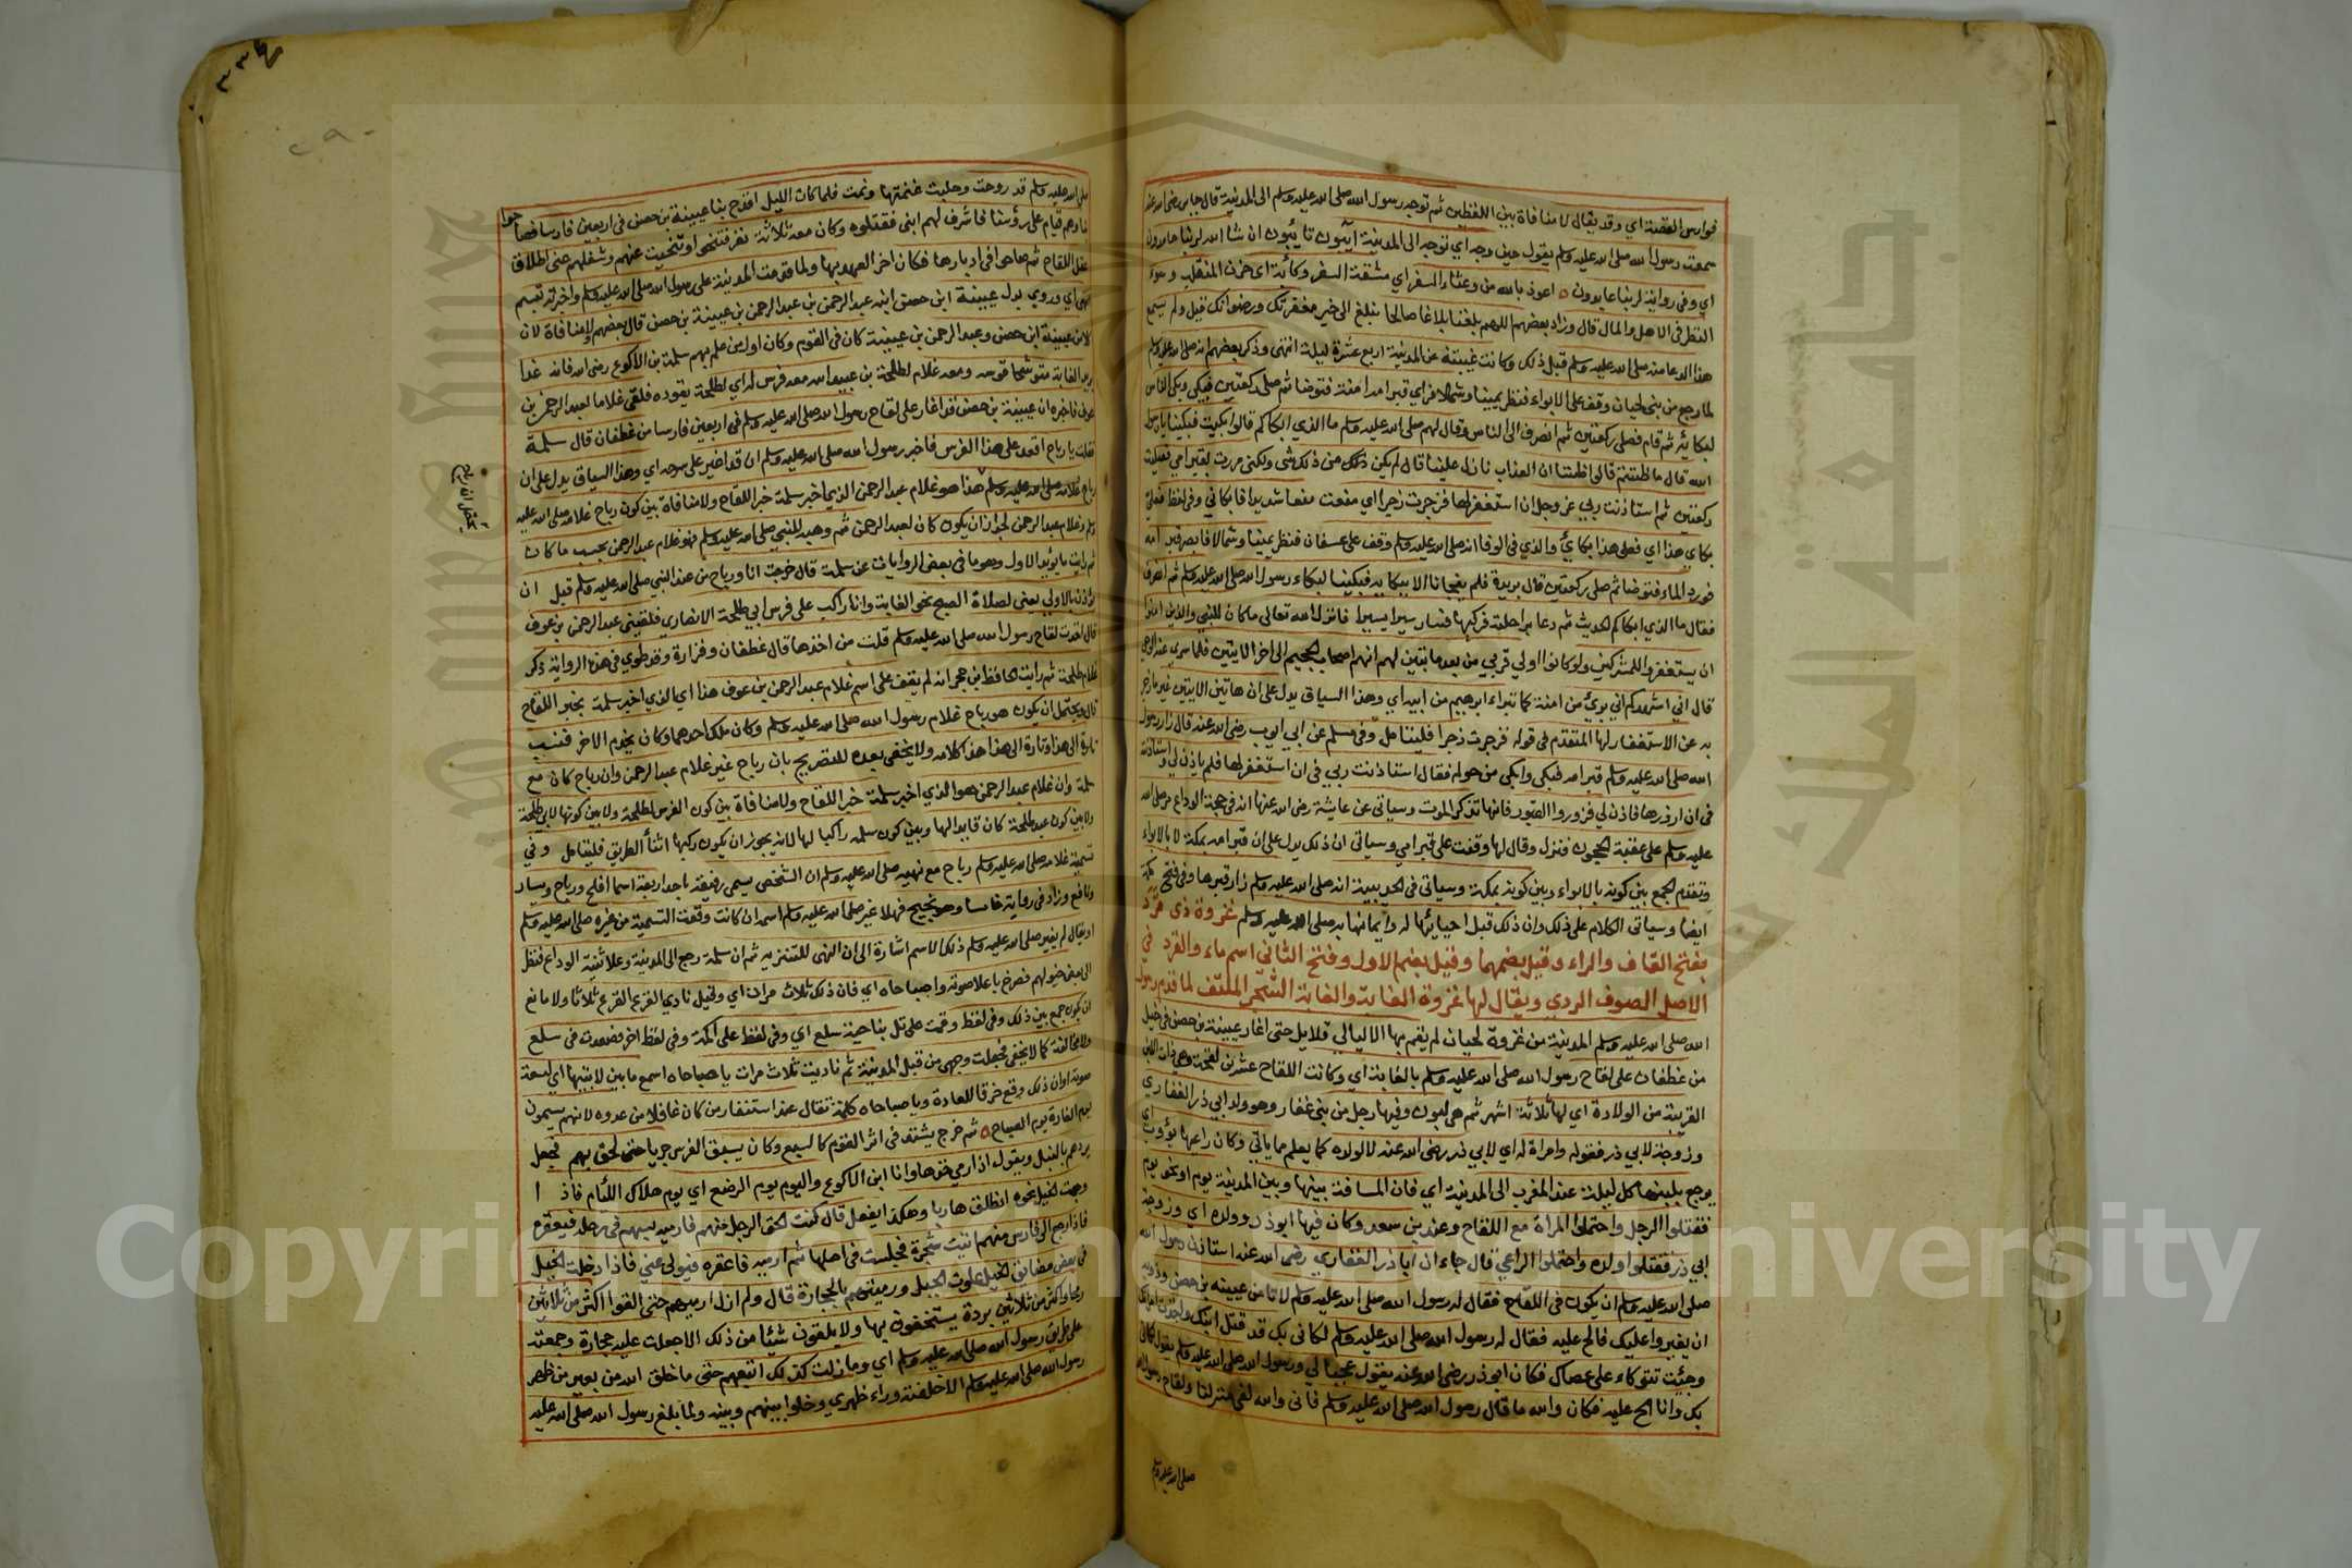 فوارس القصة اي وقد يقال لا منافاة بين اللفظين ثم توجه رسول الله صلى الله عليه وسلم الى المدينة قال جابر رضي الله عنه
سمعت رسول الله صلى الله عليه وسلم يقول حين وجه اي توجه الى المدينة آيبون تايبون ان شا الله لربنا حامدون
اي وفي رواية لربنا عابدون اعوذ بالله من وعثاء السفر اي مشقة السفر وكآبة اي حزن المنقلب وسوء
النظر في الاهل والمال قال وزاد بعضهم اللهم بلغنا بلاغا صالحا يبلغ الى خير مغفرتك ورضوانك قيل ولم يسمع
هذا الدعا منه صلى الله عليه وسلم قبل ذلك وكانت غيبته عن المدينة اربع عشرة ليلة انتهى وذكر بعضهم انه صلى الله عليه وسلم
لما رجع من بني لحيان وقف على الابواء فنظر يمينا وشمالا فراي قبر امه امنة فتوضا ثم صلى ركعتين فبكى وبكى الناس
لبكائه ثم قام فصلى ركعتين ثم انصرف الى الناس وقال لهم صلى الله عليه وسلم ما الذي ابكاكم قالوا بكيت فبكينا يا رسول
الله قال ما ظننتم قالوا ظننا ان العذاب نازل علينا قال لم يكن ذلك من ذلك شي ولكني مررت بقبر امي فصليت
ركعتين ثم استاذنت ربي عز وجل ان استغفر لها فزجرت زجرا اي منعت منعا شديدا فابكاني وفي لفظ فعلى
بكاي هذا اي فعلى هذا بكائي والذي في الوفا انه صلى الله عليه وسلم وقف على عسفان فنظر يمينا وشمالا فابصر قبر امه
فورد الماء فتوضا ثم صلى ركعتين قال بريدة فلم يفجانا الا ببكايه فبكينا لبكاء رسول الله صلى الله عليه وسلم ثم انصرف
فقال ما الذي ابكاكم الحديث ثم دعا براحلته فركبها فسار سيرا يسيرا فانزل الله تعالى ما كان للنبي والذين امنوا
ان يستغفروا للمشركين ولو كانوا اولي قربي من بعد ما تبين لهم انهم اصحاب الجحيم الى اخر الايتين فلما سري عنه الوحي
قال اني اشهدكم اني بريء من امنة كما تبراء ابرهيم من ابيه اي وهذا السياق يدل على ان هاتين الايتين غير ما زجر
به عن الاستغفار لها المتقدم في قوله فزجرت زجرا فليتامل وفي مسلم عن ابي ايوب رضي الله عنه قال زار رسول
الله صلى الله عليه وسلم قبر امه فبكى وابكى من حوله فقال استاذنت ربي في ان استغفر لها فلم ياذن لي واستاذنته
في ان ازورها فاذن لي فزوروا القبور فانها تذكر الموت وسياتى عن عايشة رضي الله عنها انه في حجة الوداع مر صلى الله
عليه وسلم على عقبة الحجون فنزل وقال لها وقفت على قبر امي وسياتي ان ذلك يدل على ان قبر امه بمكة لا بالابواء
وتقدم الجمع بين كونه بالابواء وبين كونه بمكة وسياتى في الحديبية انه صلى الله عليه وسلم زار قبرها وفي فتح مكة
ايضا وسياتى الكلام على ذلك وان ذلك قبل احيائها له وايمانها به صلى الله عليه وسلم غزوة ذي قرد
بفتح القاف والراء وقيل بضمهما وقيل بضم الاول وفتح الثاني اسم ماء والقرد في
الاصل الصوف الردي ويقال لها غزوة الغابة والغابة الشجر الملتف لما قدم رسول
الله صلى الله عليه وسلم المدينة من غزوة لحيان لم يقم بها الا ليالي قلايل حتى اغار عيينة بن حصن في خيل
من غطفان على لقاح رسول الله صلى الله عليه وسلم بالغابة اي وكانت اللقاح عشرين لقحة وهي ذات اللبن
القريبة من الولادة اي لها ثلاثة اشهر ثم هي لبون وفيها رجل من بني غفار وهو ولد ابي ذر الغفاري
وزوجة لابي ذر فقوله وامراة له اي لابي ذر رضي الله عنه لا لولده كما يعلم مما ياتي وكان راعيها يؤوب اي
يرجع بلبنها كل ليلة عند المغرب الى المدينة اي فان المسافة بينها وبين المدينة يوم او نحو يوم
فقتلوا الرجل واحتملوا المراة مع اللقاح وعند بن سعد وكان فيها ابو ذر وولده اي وزوجة
ابي ذر فقتلوا ولده واحتملوا الراعي قال جاء ان ابا ذر الغفاري رضي الله عنه استاذن رسول الله
صلى الله عليه وسلم ان يكون في اللقاح فقال له رسول الله صلى الله عليه وسلم لا تامن عيينه بن حصن وذويه
ان يغيروا عليك فالح عليه فقال له رسول الله صلى الله عليه وسلم لكاني بك قد قتل ابنك واخذت امراتك
وجئت تتوكاء على عصاك فكان ابو ذر رضي الله عنه يقول عجبا لي ورسول الله صلى الله عليه وسلم يقول لكاني
بك وانا الح عليه فكان والله ما قال رسول الله صلى الله عليه وسلم فاني والله لفي منزلنا ولقاح رسول الله
صلى الله عليه وسلم
٣٣٤
٢٩٠
صلى الله عليه وسلم قد روحت وحلبت عنمتها ونمت فلما كان الليل احدق بنا عيينة بن حصن في اربعين فارسا فصاحوا
بنا وهم قيام على رؤسنا فاشرف لهم ابني فقتلوه وكان معه ثلاثة نفر فتنحوا وتنحيت عنهم وشغلهم عني اطلاق
عقل اللقاح ثم صاحوا في ادبارها فكان اخر العهد بها ولما قدمت المدينة على رسول الله صلى الله عليه وسلم واخبرته تبسم
انتهى اي وروي بدل عيينة ابن حصن ابنه عبد الرحمن بن عبد الرحمن بن عيينة بن حصن قال بعضهم ولا منافاة لان
لابن عيينة ابن حصن وعبد الرحمن بن عيينة كان في القوم وكان اول من علم بهم سلمة بن الاكوع رضي الله فانه غدا
يريد الغابة متوشحا قوسه ومعه غلام لطلحة بن عبيد الله معه فرس له اي لطلحة يقوده فلقي غلاما لعبد الرحمن بن
عوف فاخبره ان عيينة بن حصن قد اغار على لقاح رسول الله صلى الله عليه وسلم في اربعين فارسا من غطفان قال سلمة
فقلت يا رباح اقعد على هذا الفرس فاخبر رسول الله صلى الله عليه وسلم ان قد اغير على سرحه اي وهذا السياق يدل على ان
رباح غلامه صلى الله عليه وسلم هذا هو غلام عبد الرحمن الذي اخبر سلمة خبر اللقاح ولا منافاة بين كون رباح غلامه صلى الله عليه
وسلم وغلام عبد الرحمن لجواز ان يكون كان لعبد الرحمن ثم وهبه للنبي صلى الله عليه وسلم فهو غلام عبد الرحمن بحسب ما كان
ثم رايت ما يؤيد الاول وهو ما في بعض الروايات عن سلمة قال خرجت انا ورباح من عند النبي صلى الله عليه وسلم قبل ان
يؤذن بالاولى يعني لصلاة الصبح نحو الغابة وانا راكب على فرس ابي طلحة الانصاري فلقيني عبد الرحمن بن عوف
قال اخذت لقاح رسول الله صلى الله عليه وسلم قلت من اخذها قال غطفان وفزارة وقد طوي في هذه الرواية ذكر
غلام طلحة ثم رايت الحافظ ابن حجر انه لم يقف على اسم غلام عبد الرحمن بن عوف هذا اي الذي اخبر سلمة بخبر اللقاح
قال ويحتمل ان يكون هو رباح غلام رسول الله صلى الله عليه وسلم وكان ملك احدهما وكان يخدم الاخر فنسب
تارة الى هذا وتارة الى هذا هذا كلامه ولا يخفى بعده للتصريح بان رباح غير غلام عبد الرحمن وان رباح كان مع
سلمة وان غلام عبد الرحمن هو الذي اخبر سلمة خبر اللقاح ولا منافاة بين كون الفرس لطلحة ولا بين كونها لابي طلحة
ولا بين كون عبد طلحة كان قايدا لها وبين كون سلمه راكبا لها لانه يجوز ان يكون ركبها اثنا الطريق فليتامل وفي
تسمية غلامه صلى الله عليه وسلم رباح مع نهيه صلى الله عليه وسلم ان الشخص يسمي رقيقه باحد اربعة اسما افلح ورباح ويسار
ونافع وزاد في رواية خامسا وهو نجيح فهلا غير صلى الله عليه وسلم اسمه ان كانت وقعت التسمية من غيره صلى الله عليه وسلم
او يقال لم يغير صلى الله عليه وسلم ذلك الاسم اشارة الى ان النهي للتنزيه ثم ان سلمة رجع الى المدينة وعلا ثنية الوداع فنظر
الى بعض خيولهم فصرخ باعلا صوته واصباحاه اي فان ذلك ثلاث مرات اي وقيل نادي الفزع الفزع ثلاثا ولا مانع
ان يكون جمع بين ذلك وفي لفظ وقمت على تل بناحية سلع اي وفي لفظ على اكمة وفي لفظ اخر فصعدت في سلع
ولا مخالفة كما لا يخفى فجعلت وجهي من قبل المدينة ثم ناديت ثلاث مرات يا صباحاه اسمع ما بين لابتيها اي لسعة
صوته او ان ذلك وقع خرقا للعادة ويا صباحاه كلمة تقال عند استنفار من كان غافلا من عدوه لانهم يسمون
يوم الغارة يوم الصباح ثم خرج يشتد في اثر القوم كالسبع وكان يسبق الفرس جريا حتى لحق بهم فجعل
يردهم بالنبل ويقول اذا رمي خذها وانا ابن الاكوع واليوم يوم الرضع اي يوم هلاك اللئام فاذا
وجهت الخيل نحوه انطلق هاربا وهكذا يفعل قال كنت الحق الرجل منهم فارميه بسهم في رجله فيعقره
فاذا رجع الي فارس منهم اتيت شجرة فجلست في اصلها ثم ارميه فاعقره فيولي عني فاذا دخلت الخيل
في بعض مضايق الجبل علوت الجبل ورميتهم بالحجارة قال ولم ازل ارميهم حتى القوا اكثر من ثلاثين
رمحا واكثر من ثلاثين بردة يستخفون بها ولا يلقون شيئا من ذلك الا جعلت عليه حجارة وجمعته
على طريق رسول الله صلى الله عليه وسلم اي وما زلت كذلك اتبعهم حتى ما خلق الله من بعير من ظهر
رسول الله صلى الله عليه وسلم الا خلفته وراء ظهري وخلوا بينهم وبينه ولما بلغ رسول الله صلى الله عليه
Copyri University